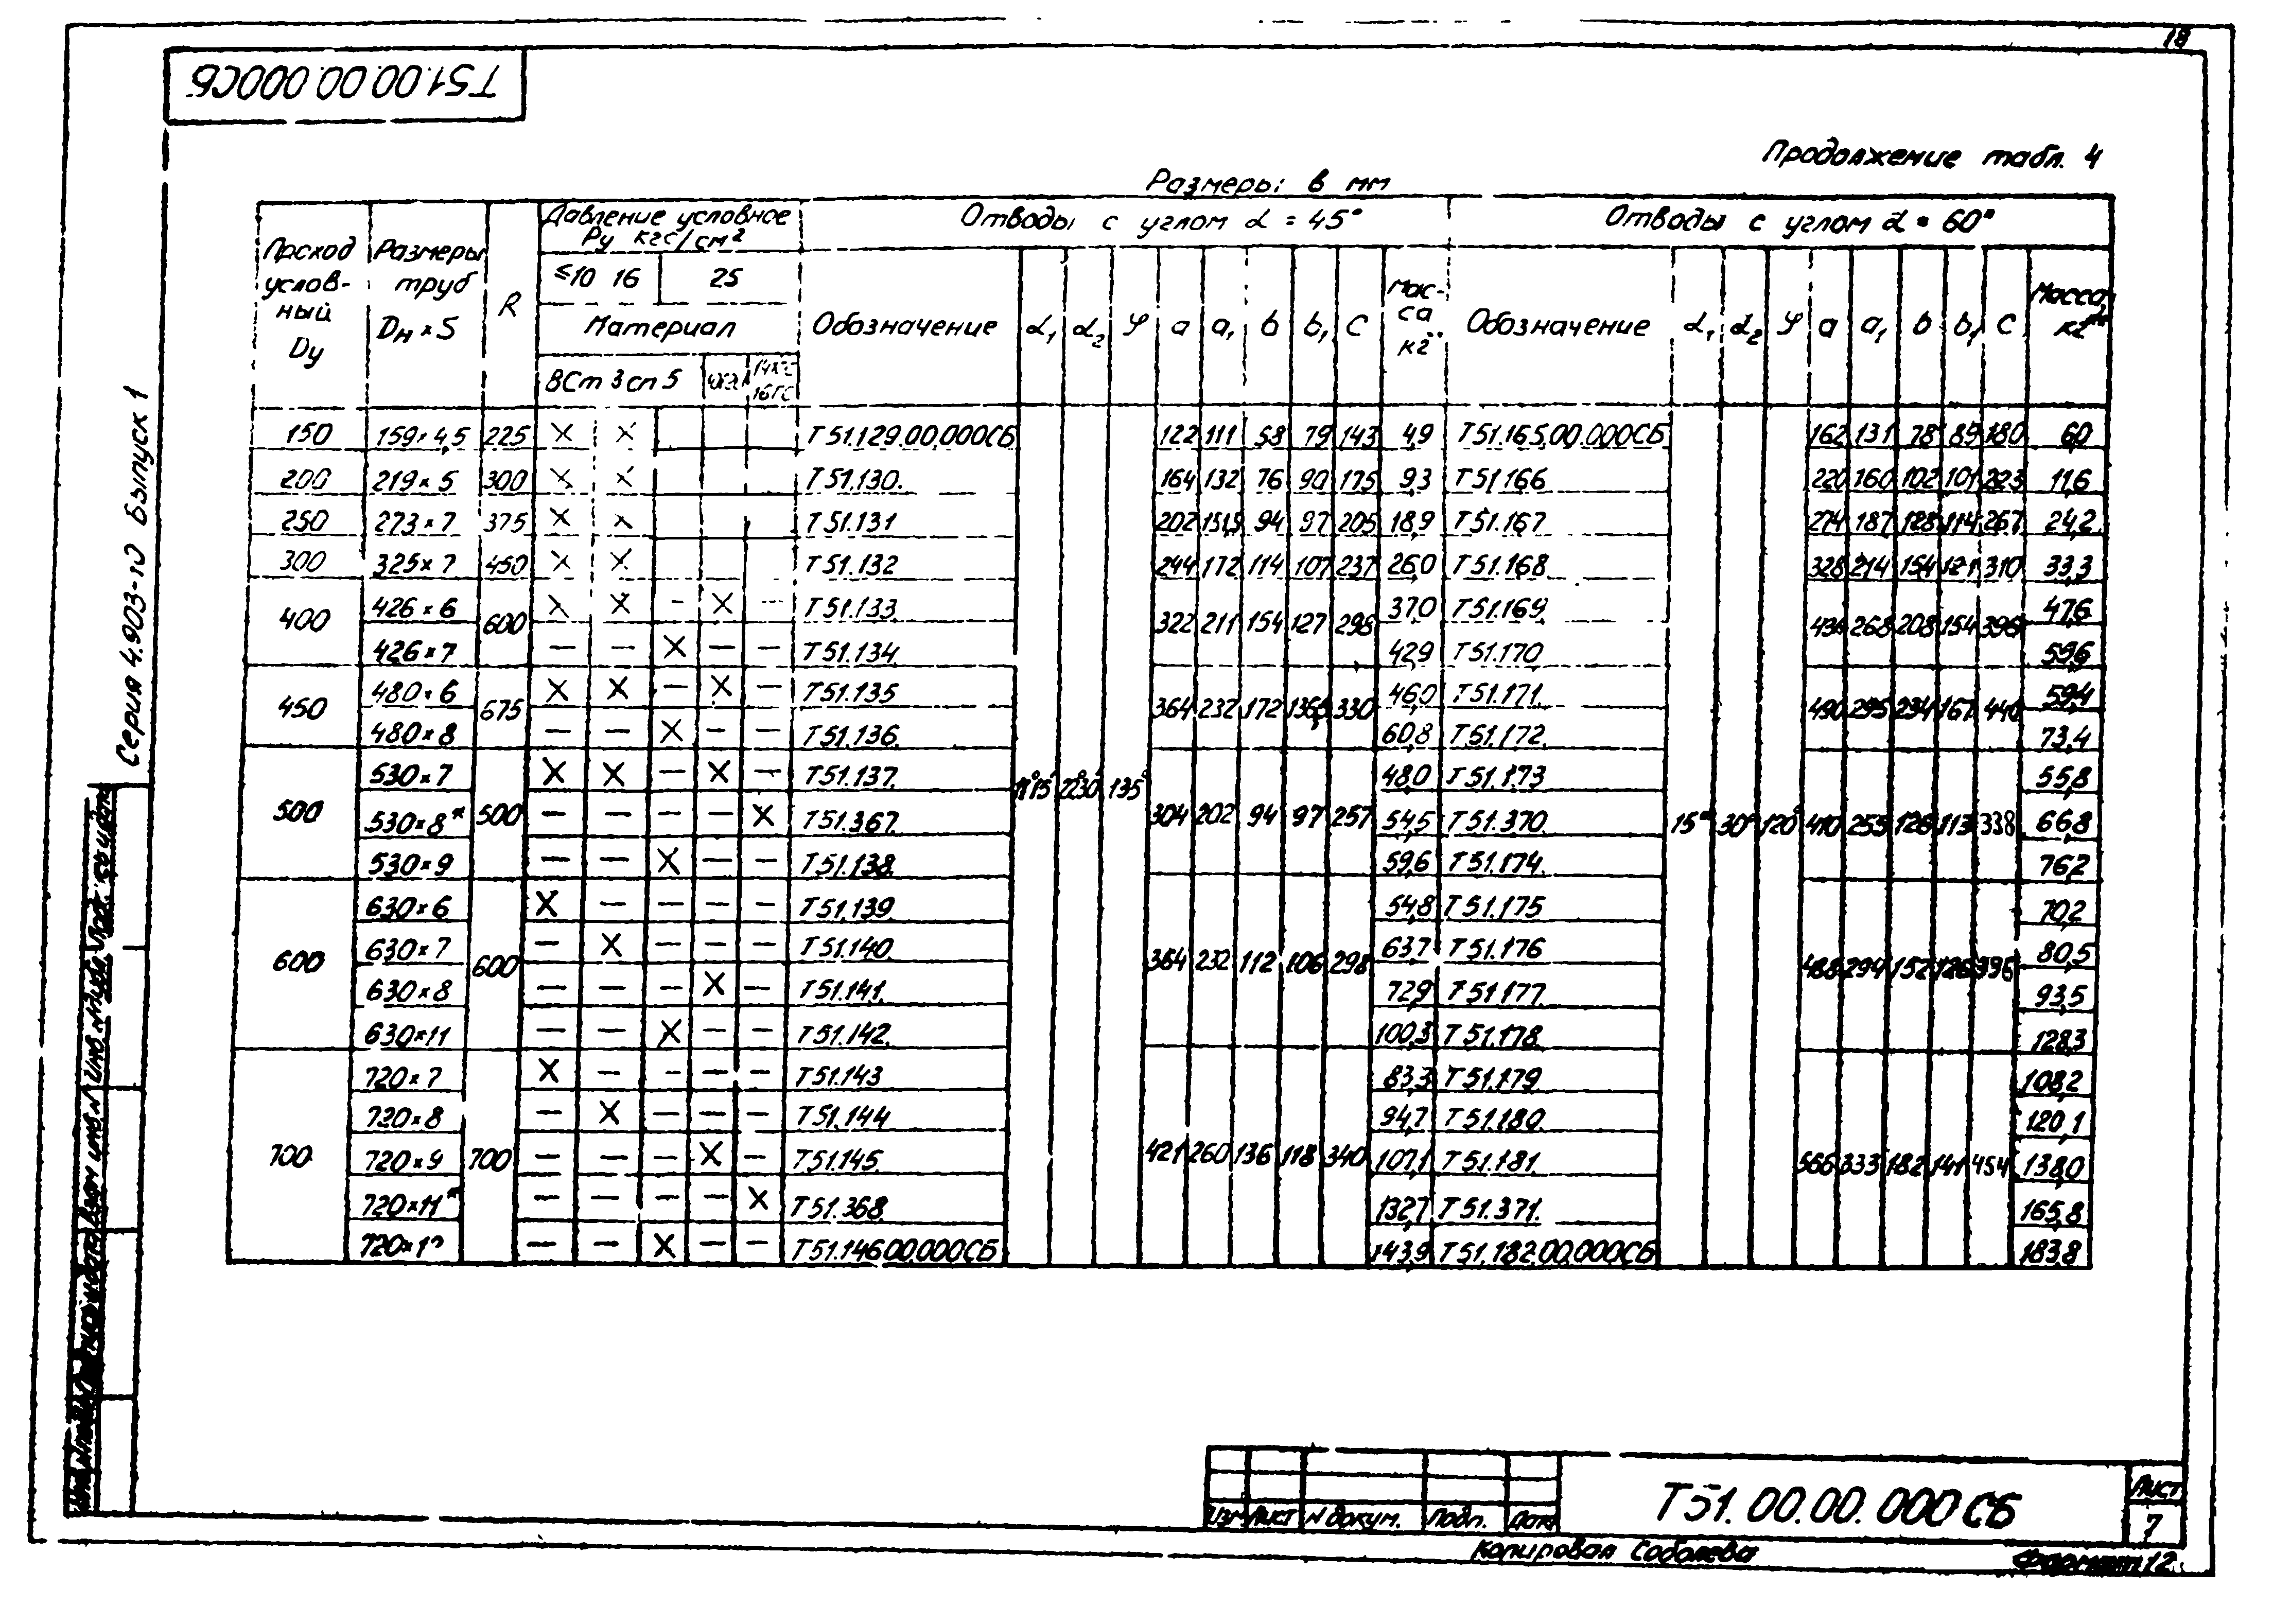 18
Т51.00.00.000СБ
Серия 4.903-10 Выпуск 1
Продолжение табл. 4
Размеры в мм
Проход условный Dу | Размеры труб Dн × S | R | Давление условное Ру кгс/см² | Отводы с углом α = 45° | Отводы с углом α = 60°
≤10 16 | 25
Материал
ВСт 3 сп 5 | 16ГС
Обозначение | α₁ | α₂ | φ | a | a₁ | b | b₁ | c | Масса кг | Обозначение | α₁ | α₂ | φ | a | a₁ | b | b₁ | c | Масса, кг
150 | 159×4,5 | 225 | × | × | Т51.129.00.000СБ | 122 | 111 | 58 | 79 | 143 | 4,9 | Т51.165.00.000СБ | 162 | 131 | 78 | 89 | 180 | 6,0
200 | 219×5 | 300 | × | × | Т51.130. | 164 | 132 | 76 | 90 | 175 | 9,3 | Т51.166 | 220 | 160 | 102 | 101 | 223 | 11,6
250 | 273×7 | 375 | × | × | Т51.131 | 202 | 151,5 | 94 | 97 | 205 | 18,9 | Т51.167. | 274 | 187 | 128 | 114 | 267 | 24,2
300 | 325×7 | 450 | × | × | Т51.132 | 244 | 172 | 114 | 107 | 237 | 26,0 | Т51.168 | 328 | 214 | 154 | 310 | 33,3
400 | 426×6 | 600 | × | × | – | × | – | Т51.133. | 322 | 211 | 154 | 127 | 298 | 37,0 | Т51.169. | 268 | 208 | 154 | 396 | 47,6
426×7 | — | — | × | — | — | Т51.134. | 42,9 | Т51.170. | 59,6
450 | 480×6 | 675 | × | × | — | × | — | Т51.135 | 364 | 232 | 172 | 136,5 | 330 | 46,0 | Т51.171. | 490 | 295 | 234 | 167 | 440 | 59,4
480×8 | — | — | × | — | — | Т51.136. | 60,8 | Т51.172. | 73,4
500 | 530×7 | 500 | × | × | — | × | — | Т51.137. | 11°15′ | 22°30′ | 135° | 304 | 202 | 94 | 97 | 257 | 48,0 | Т51.173 | 15° | 30° | 120° | 410 | 255 | 128 | 113 | 338 | 55,8
530×8* | — | — | — | — | × | Т51.367. | 54,5 | Т51.370. | 66,8
530×9 | — | — | × | — | — | Т51.138. | 59,6 | Т51.174. | 76,2
600 | 630×6 | 600 | × | — | — | — | — | Т51.139 | 364 | 232 | 112 | 106 | 298 | 54,8 | Т51.175 | 488 | 294 | 152 | 126 | 396 | 70,2
630×7 | — | × | — | — | — | Т51.140. | 63,7 | Т51.176 | 80,5
630×8 | — | — | — | × | — | Т51.141. | 72,9 | Т51.177. | 93,5
630×11 | — | — | × | — | — | Т51.142. | 100,3 | Т51.178. | 128,3
700 | 720×7 | 700 | × | — | — | — | — | Т51.143 | 421 | 260 | 136 | 118 | 340 | 83,3 | Т51.179. | 566 | 333 | 182 | 141 | 454 | 108,2
720×8 | — | × | — | — | — | Т51.144 | 94,7 | Т51.180. | 120,1
720×9 | — | — | — | × | — | Т51.145. | 107,1 | Т51.181. | 138,0
720×11* | — | — | — | — | × | Т51.368. | 132,7 | Т51.371. | 165,8
— | — | × | — | — | Т51.146.00.000СБ | 143,9 | Т51.182.00.000СБ | 183,8
Изм Лист N докум. Подп. Дата
Т51.00.00.000СБ
Лист
7
Копировал Соболева
Формат 12